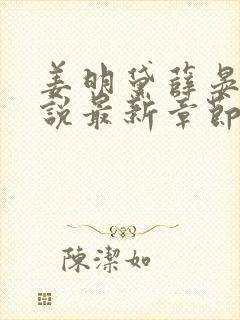 姜明黛薛晏
說最新章節
陳潔如